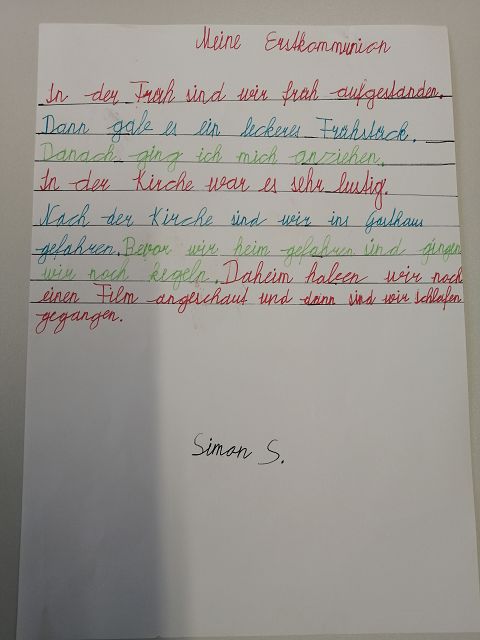 Meine Erstkommunion
In der Früh sind wir früh aufgestanden.
Dann gab es ein leckeres Frühstück.
Danach ging ich mich anziehen.
In der Kirche war es sehr lustig.
Nach der Kirche sind wir ins Gasthaus
gefahren. Bevor wir heim gefahren sind gingen
wir noch kegeln. Daheim haben wir noch
einen Film angeschaut und dann sind wir schlafen
gegangen.
Simon S.